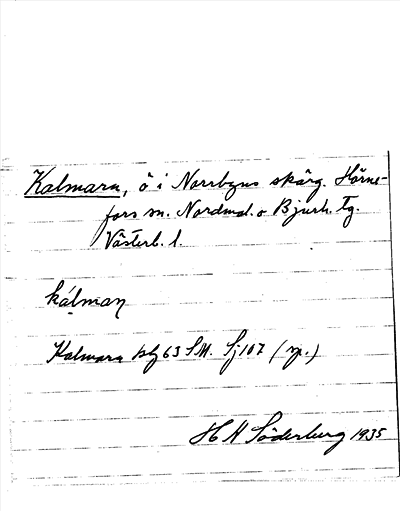 Kalmarn, ö i Norrbyns skärg. Hörne-
fors sn. Nordmal. o Bjurh. tg.
Västerb. l.
kálmaɳ
Kalmarn blg 63 SM. Sj 107 (sp.)
H H Söderburg 1935